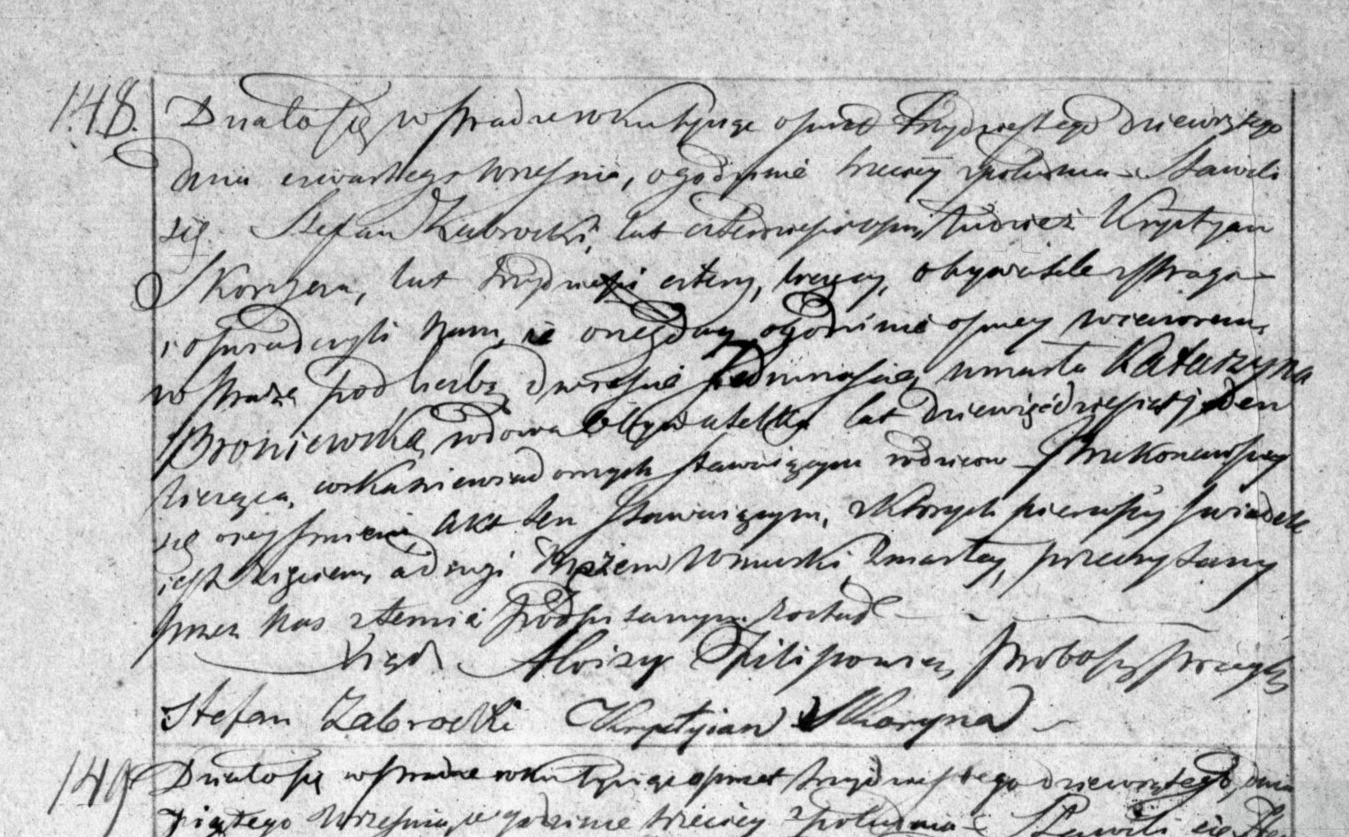 148.
Działo się w Pradze roku tysiąc ośmset trzydziestego dziewiątego
dnia czwartego Września, o godzinie trzeciey z południa. Stawili
się Stefan Zabrocki, lat czterdzieści ośm, tudzież Krystyan
Skoryna, lat trzydzieści cztery, liczący, obywatele z Praga
i oświadczyli Nam, że onegday o godzinie osmey wieczorem,
w Pradze pod liczbą dwieście siedmnaście, umarła Katarzyna
Broniewska, wdowa Obywatelka lat dziewięćdziesiąt jeden
licząca, córka niewiadomych stawaiącym rodziców. Przekonawszy
się o iey śmierci, akt ten Stawaiącym, z których pierwszy świadek
iest zięciem, a drugi mężem wnuczki zmarłey, przeczytany
przez Nas z temiż podpisanym został
Xiądz Aloizy Filipowicz, Proboszcz Pragi
Stefan Zabrocki Krystyian Skoryna
149.
Działo się w Pradze roku tysiąc ośmset trzydziestego dziewiątego, dnia
Piątego Września, o godzinie trzeciey z południa. Stawili się